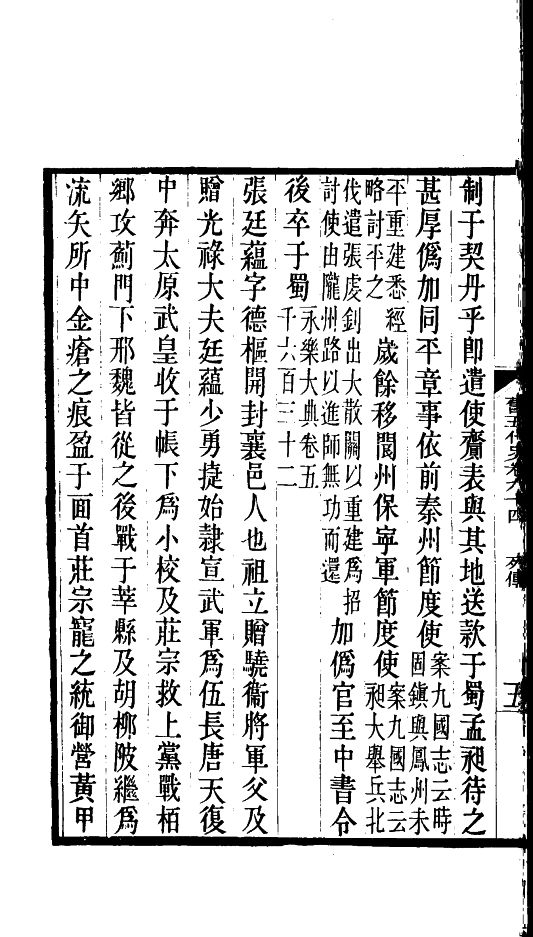 舊五代史卷九十四 列傳 五
制于契丹乎卽遣使齎表與其地送款于蜀孟昶待之
甚厚僞加同平章事依前秦州節度使案九國志云時固鎭與鳳州未
平重建悉經略討平之歲餘移閬州保寧軍節度使案九國志云昶大舉兵北
伐遣張虔釗出大散關以重建爲招討使由隴州路以進師無功而還加僞官至中書令
後卒于蜀永樂大典卷五千六百三十二
張廷蘊字德樞開封襄邑人也祖立贈驍衞將軍父及
贈光祿大夫廷蘊少勇捷始隸宣武軍爲伍長唐天復
中奔太原武皇收于帳下爲小校及莊宗救上黨戰栢
鄉攻薊門下邢魏皆從之後戰于莘縣及胡柳陂繼爲
流矢所中金瘡之痕盈于面首莊宗寵之統御營黃甲